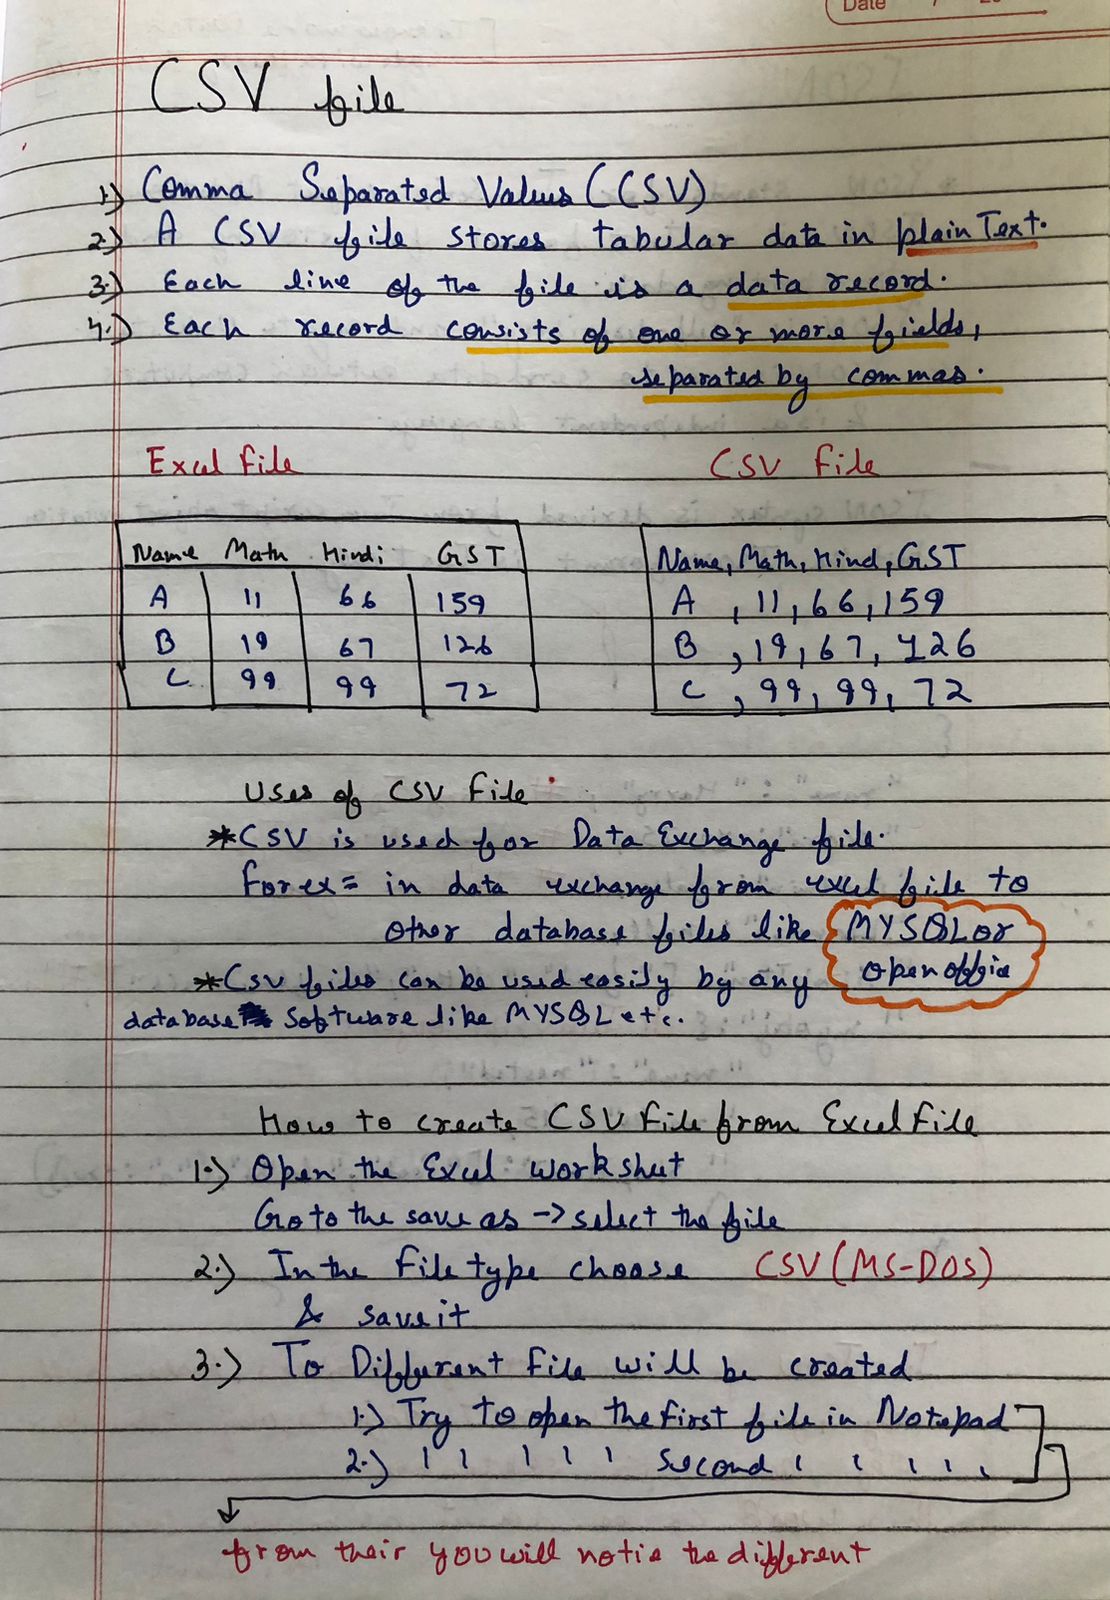 Date
CSV file
1.) Comma Separated Values (CSV)
2.) A CSV file stores tabular data in plain Text.
3.) Each line of the file is a data record.
4.) Each record consists of one or more fields,
separated by commas.
Excel file CSV File
Name Math Hindi GST
A 11 66 159
B 19 67 126
C 99 99 72
Name, Math, Hind, GST
A , 11, 66, 159
B , 19, 67, 126
C , 99, 99, 72
Uses of CSV File
*CSV is used for Data Exchange file.
For ex = in data exchange from excel file to
other database files like MYSQL or
open office
*Csv files can be used easily by any
database software like MYSQL etc.
How to create CSV File from Excel File
1.) Open the Excel worksheet
Go to the save as -> select the file
2.) In the File type choose CSV (MS-DOS)
& save it
3.) To Different File will be created
1.) Try to open the first file in Notepad
2.) ı ı ı ı ı Second ı ı ı ı ı
from their you will notie the different